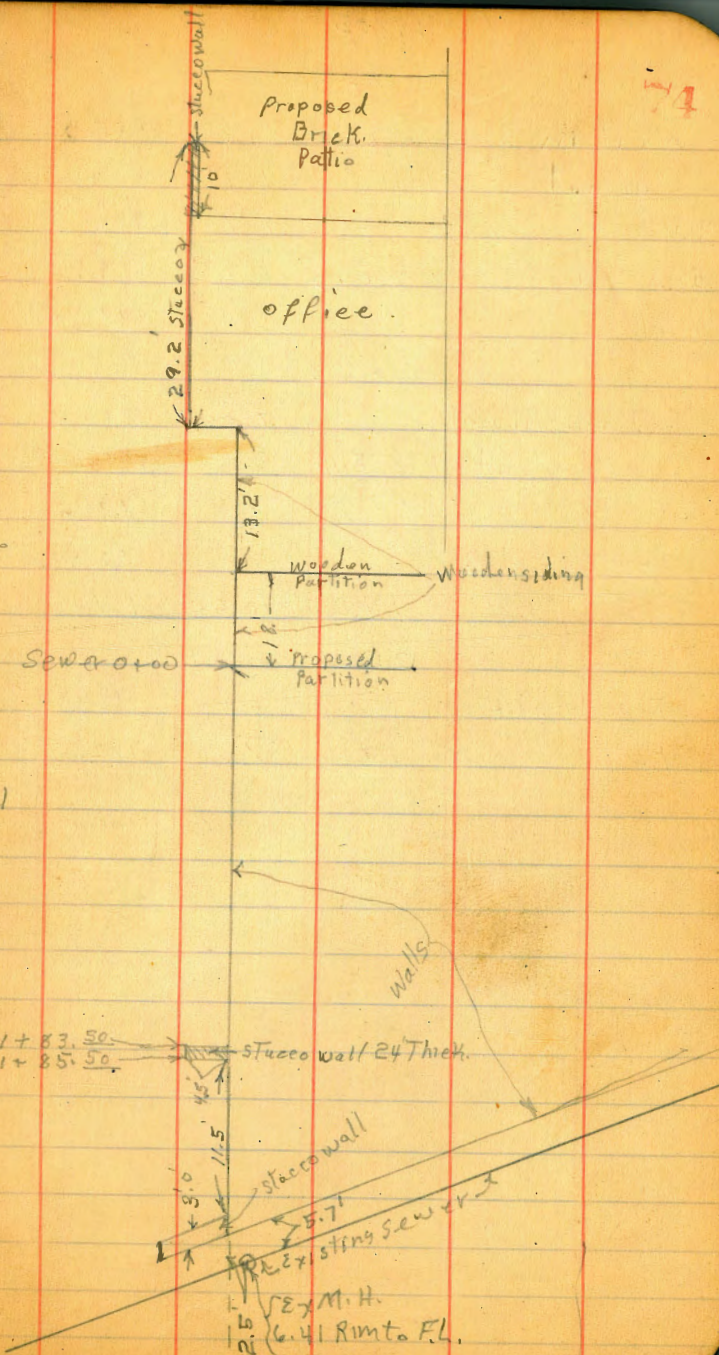 74
stucco wall
Proposed
Brick.
Patio
10'
29.2' Stucco
office.
13.2'
Wooden
Partition
Wooden siding
18'
Sewer 0+00
Proposed
Partition
Walls
1 + 83.50
1 + 85.50
Stucco wall 24" Thick.
4.5'
11.5'
3.0'
Stucco wall
5.7'
Existing Sewer
2.5'
Ex M.H.
6.41 Rim to F.L.